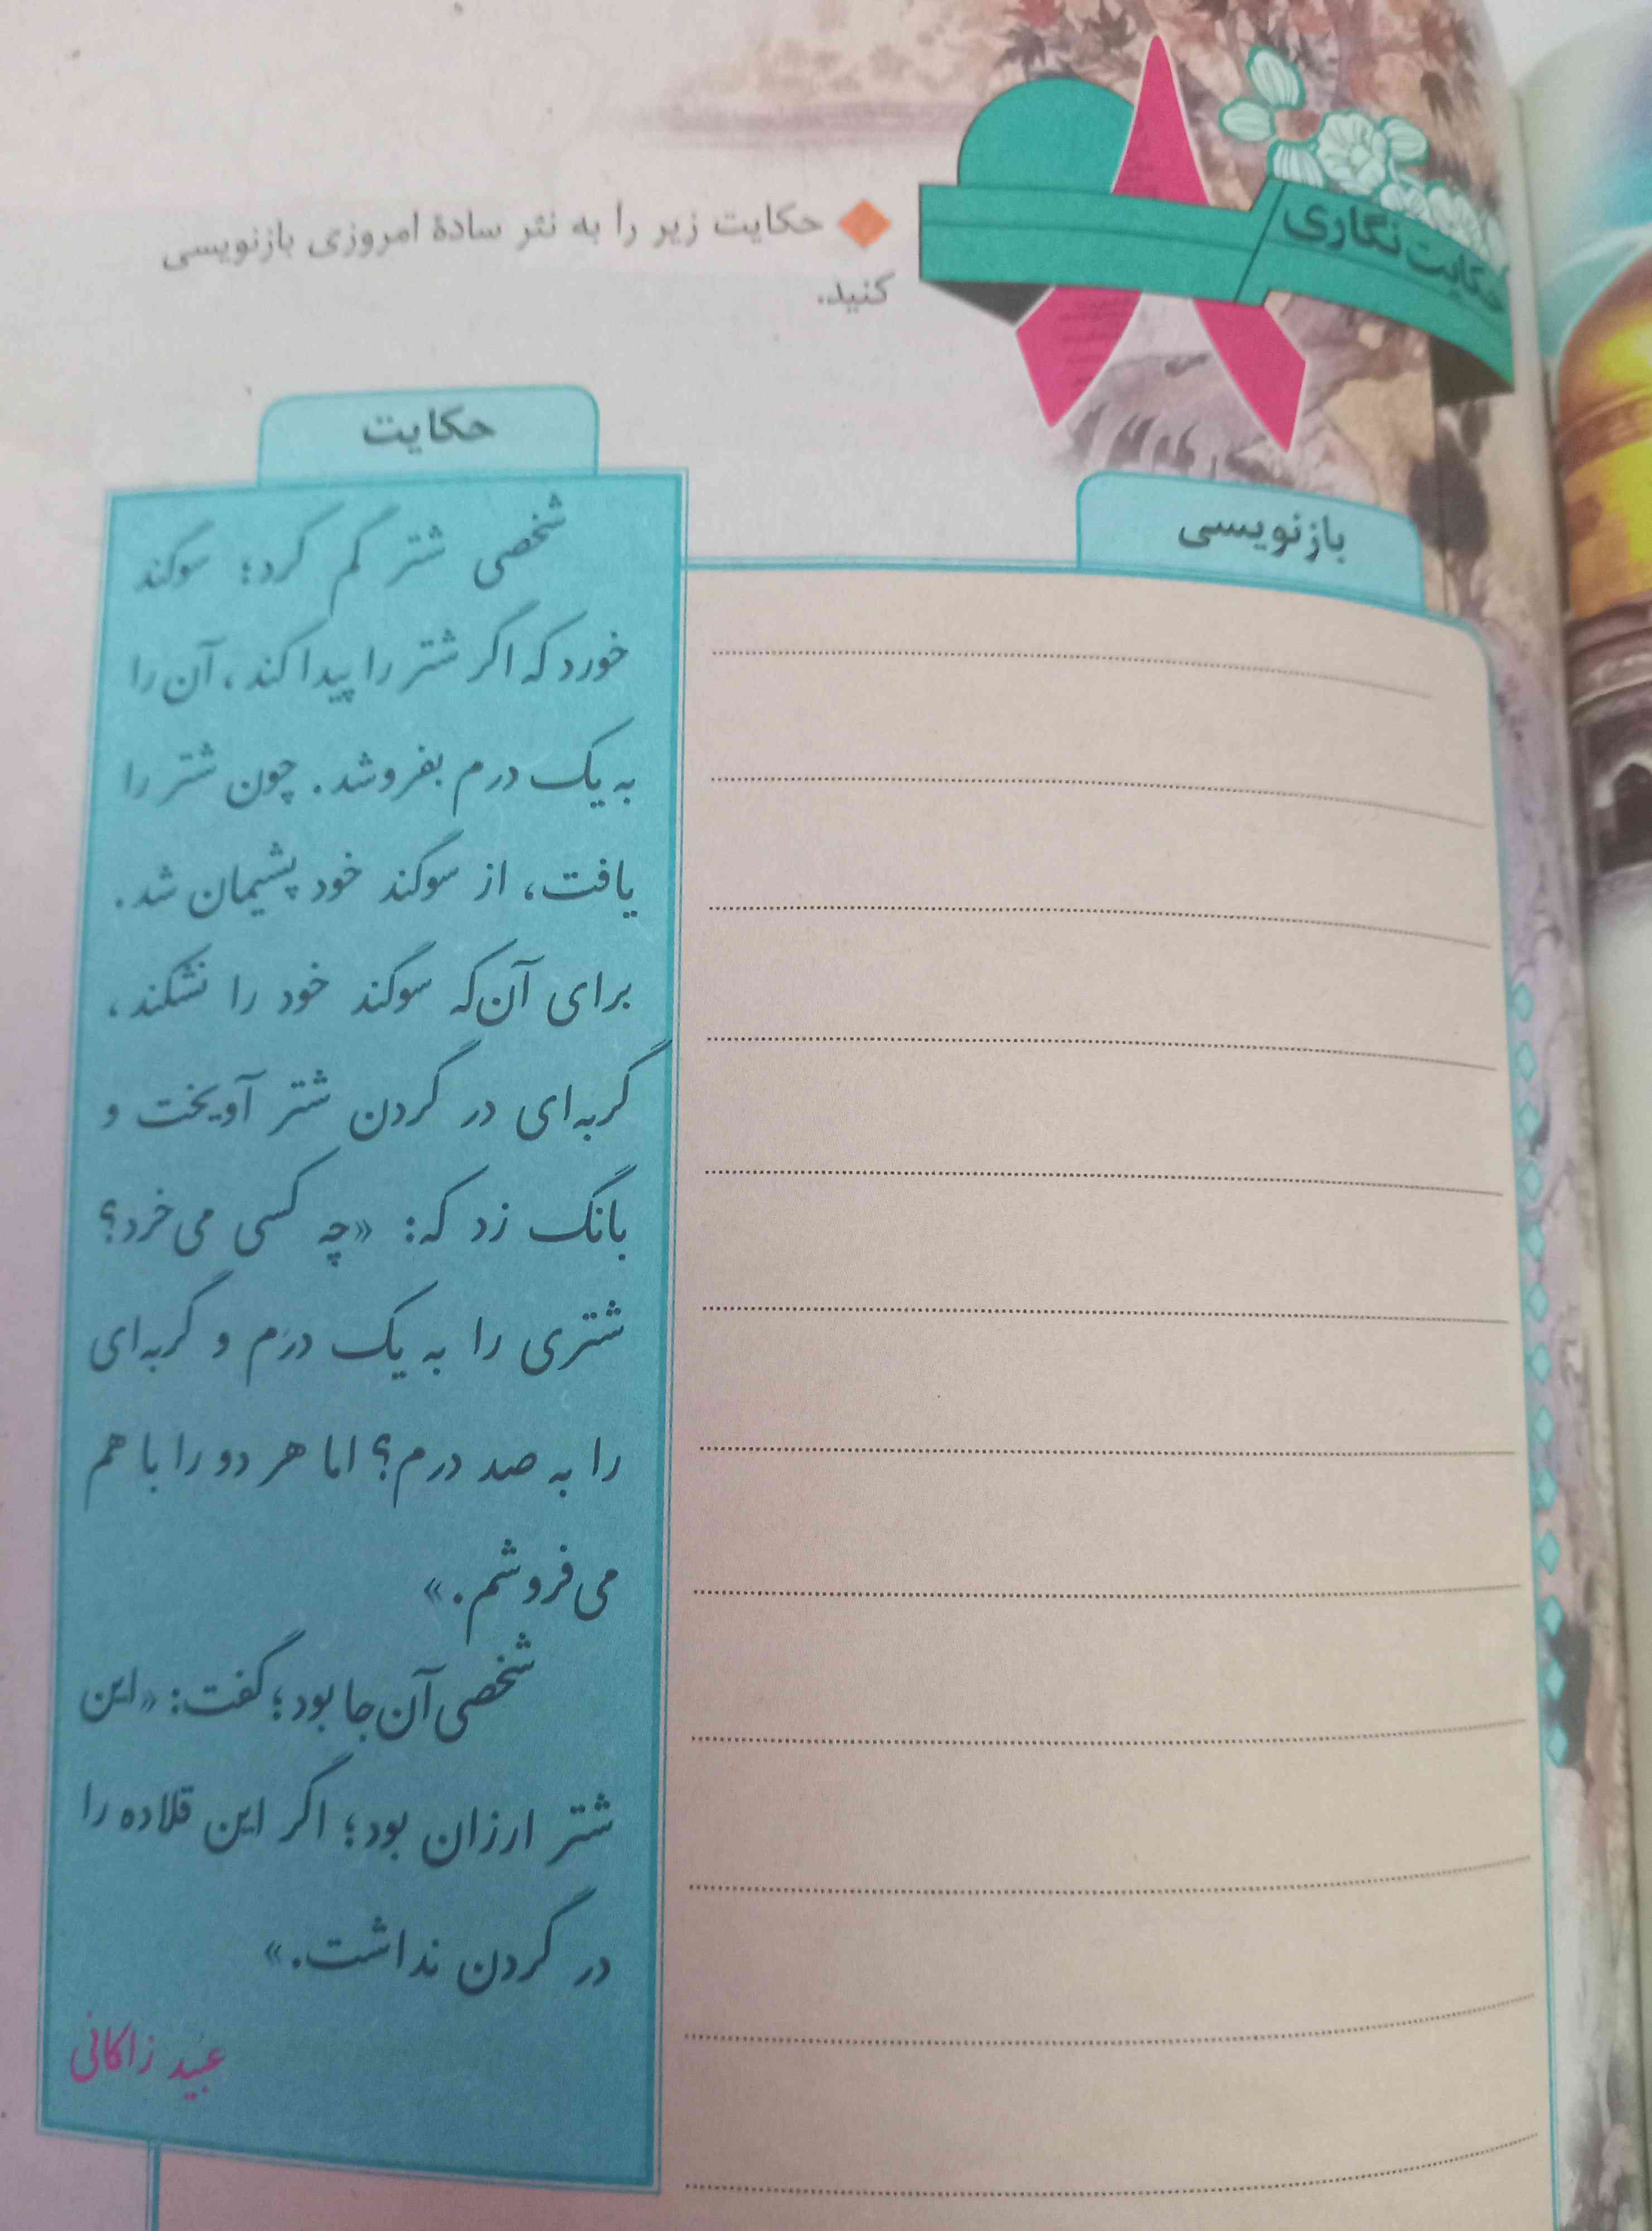 حکایت‌نگاری
حکایت زیر را به نثر سادهٔ امروزی بازنویسی
کنید.
بازنویسی
حکایت
شخصی شتر گم کرد؛ سوگند
خورد که اگر شتر را پیدا کند، آن را
به یک درم بفروشد. چون شتر را
یافت، از سوگند خود پشیمان شد.
برای آن‌که سوگند خود را نشکند،
گربه‌ای در گردن شتر آویخت و
بانگ زد که: «چه کسی می‌خرد؟
شتری را به یک درَم و گربه‌ای
را به صد درم؟ اما هر دو را با هم
می‌فروشم.»
شخصی آن‌جا بود؛ گفت: «این
شتر ارزان بود؛ اگر این قلاده را
در گردن نداشت.»
عبید زاکانی